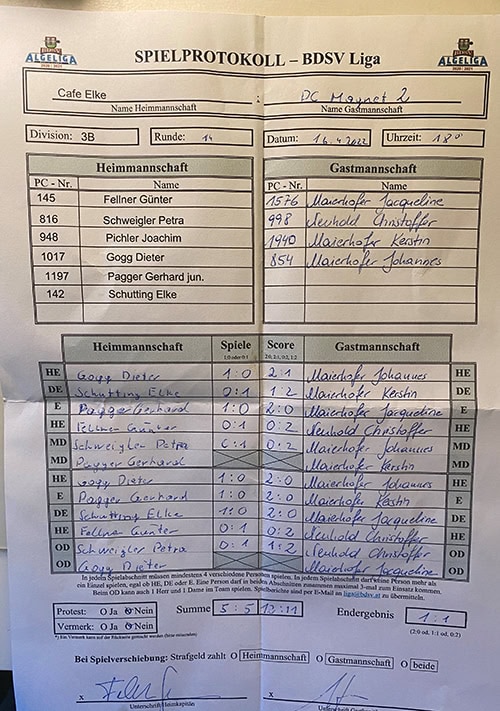 BDSV
ALGELIGA
2020 | 2021
SPIELPROTOKOLL – BDSV Liga
BDSV
ALGELIGA
2020 | 2021
Cafe Elke : DC Magnet 2
Name Heimmannschaft Name Gastmannschaft
Division: 3B Runde: 14 Datum: 16.4.2022 Uhrzeit: 18°°
Heimmannschaft Gastmannschaft
PC - Nr. Name PC - Nr. Name
145 Fellner Günter 1576 Maierhofer Jacqueline
816 Schweigler Petra 998 Neuhold Christoffer
948 Pichler Joachim 1940 Maierhofer Kerstin
1017 Gogg Dieter 854 Maierhofer Johannes
1197 Pagger Gerhard jun.
142 Schutting Elke
Heimmannschaft Spiele Score Gastmannschaft
1:0 oder 0:1 2:0, 2:1, 0:2, 1:2
HE Gogg Dieter 1:0 2:1 Maierhofer Johannes HE
DE Schutting Elke 0:1 1:2 Maierhofer Kerstin DE
E Pagger Gerhard 1:0 2:0 Maierhofer Jacqueline E
HE Fellner Günter 0:1 0:2 Neuhold Christoffer HE
MD Schweigler Petra 0:1 0:2 Maierhofer Johannes MD
MD Pagger Gerhard Maierhofer Kerstin MD
HE Gogg Dieter 1:0 2:0 Maierhofer Johannes HE
E Pagger Gerhard 1:0 2:0 Maierhofer Kerstin E
DE Schutting Elke 1:0 2:0 Maierhofer Jacqueline DE
HE Fellner Günter 0:1 0:2 Neuhold Christoffer HE
OD Schweigler Petra 0:1 1:2 Neuhold Christoffer OD
OD Gogg Dieter Maierhofer Jacqueline OD
In jedem Spielabschnitt müssen mindestens 4 verschiedene Personen spielen. In jedem Spielabschnitt darf eine Person mehr als
ein Einzel spielen, egal ob HE, DE oder E. Eine Person darf in beiden Abschnitten zusammen maximal 3-mal zum Einsatz kommen.
Beim OD kann auch 1 Herr und 1 Dame im Team spielen. Spielberichte sind per E-Mail an liga@bdsv.at zu übermitteln.
Protest: O Ja O Nein Summe 5:5 12:11 Endergebnis 1:1
Vermerk: O Ja O Nein (2:0 od. 1:1 od. 0:2)
*) Ein Vermerk kann auf der Rückseite gemacht werden
Bei Spielverschiebung: Strafgeld zahlt O Heimmannschaft O Gastmannschaft O beide
x x
Unterschrift Heimkapitän